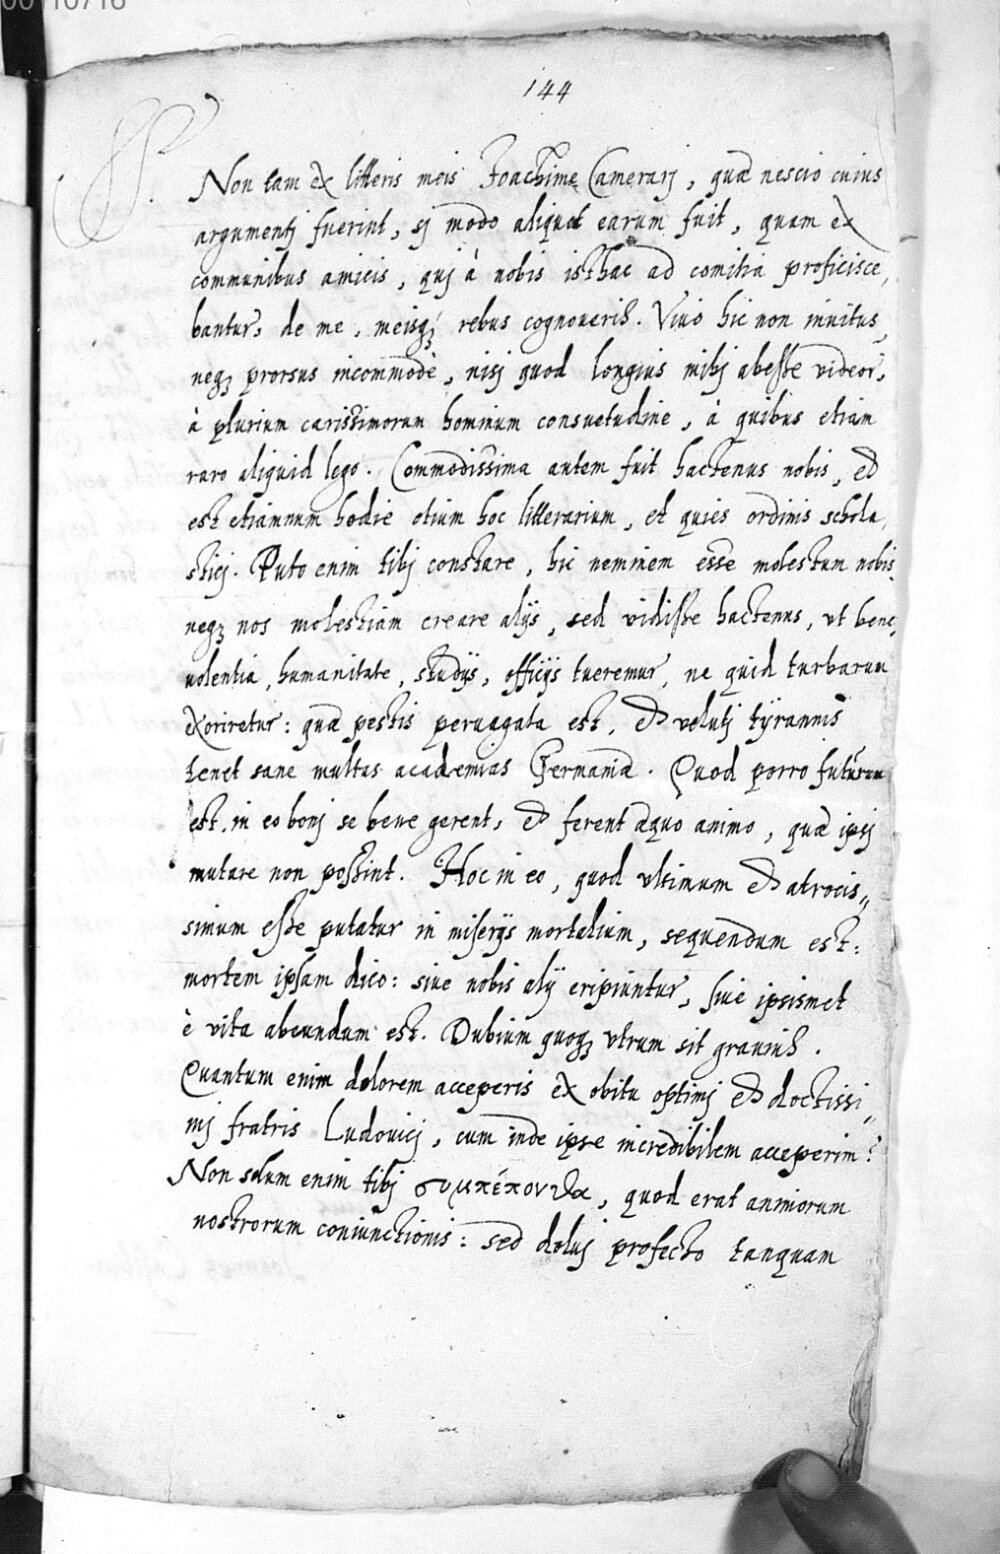 00110716
144
S. Non tam ex litteris meis Joachime Camerarj, quæ nescio cuius
argumentj fuerint, sj modo aliquæ earum fuit, quam ex
communibus amicis, quj à nobis isthac ad comitia proficisce,
bantur, de me, meisq; rebus cognoueris. Viuo hic non inuitus,
neq; prorsus incommodè, nisj quod longius mihj abesse videor,
à plurium carissimorum hominum consuetudine, à quibus etiam
raro aliquid lego. Commodissima autem fuit hactenus nobis, et
est etiamnum hodie otium hoc litterarium, et quies ordinis schola,
sticj. Puto enim tibj constare, hic neminem esse molestum nobis,
neq; nos molestiam creare alijs, sed vidisse hactenus, vt bene,
uolentia, humanitate, studijs, officijs tueremur, ne quid turbarum
exoriretur: quæ pestis peruagata est, et velutj tÿrannis
tenet sane multas academias Germaniæ. Quod porro futurum
est, in eo bonj se bene gerent, et ferent æquo animo, quæ ipsj
mutare non possint. Hoc in eo, quod vltimum et atrocis,,
simum esse putatur in miserijs mortalium, sequendum est:
mortem ipsam dico: siue nobis alij eripiuntur, siue ipsismet
è vita abeundum est. Dubium quoq; vtrum sit grauius.
Quantum enim dolorem acceperis ex obitu optimj et doctissi,,
mj fratris Ludouicj, cum inde ipse incredibilem acceperim?
Non solum enim tibj συμπέπονθα, quod erat animorum
nostrorum coniunctionis: sed doluj profecto tanquam